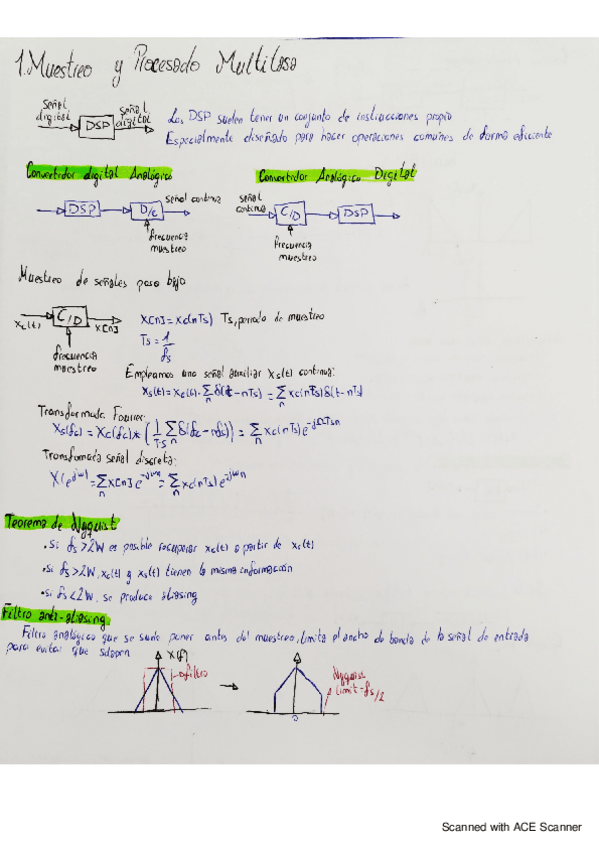 1. Muestreo y Procesado Multitasa
Señal digital
DSP
Señal digital
Los DSP suelen tener un conjunto de instrucciones propio
Especialmente diseñado para hacer operaciones comunes de forma eficiente
Convertidor digital Analógico
Convertidor Analógico Digital
DSP
D/C
señal continua
frecuencia muestreo
señal continua
C/D
DSP
Frecuencia muestreo
Muestreo de señales paso bajo
xc(t)
C/D
x[n]
frecuencia muestreo
x[n] = xc(nTs) Ts, periodo de muestreo
Ts = 1/fs
Empleamos una señal auxiliar xs(t) continua:
xs(t) = xc(t)·∑n δ(t-nTs) = ∑n xc(nTs)δ(t-nTs)
Transformada Fourier:
Xs(fc) = Xc(fc)*(1/Ts ∑n δ(fc-nfs)) = ∑n xc(nTs)e^-jΩTsn
Transformada señal discreta:
X(e^jω) = ∑n x[n]e^-jωn = ∑n xc(nTs)e^-jωn
Teorema de Nyquist
• Si fs>2W es posible recuperar xc(t) a partir de xc(t)
• Si fs>2W, xc(t) y xs(t) tienen la misma información
• Si fs<2W, se produce aliasing
Filtro anti-aliasing:
Filtro analógico que se suele poner antes del muestreo, limita el ancho de banda de la señal de entrada
para evitar que solapen
X(f)
filtro
0
limit-fs/2
Scanned with ACE Scanner